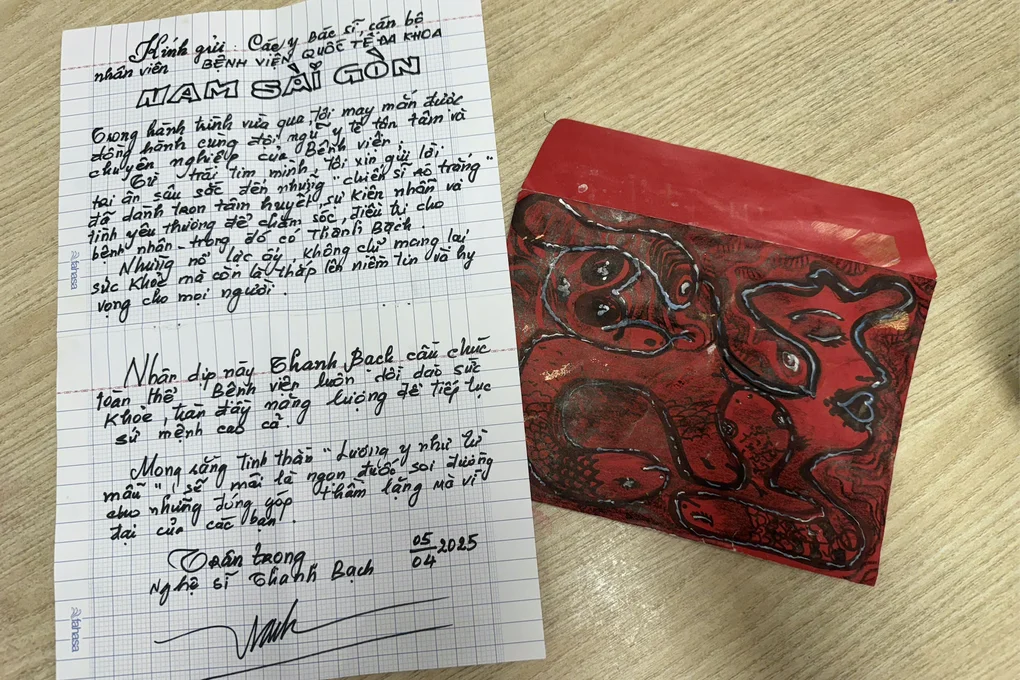 Kính gửi : Các y bác sĩ, cán bộ
nhân viên BỆNH VIỆN QUỐC TẾ ĐA KHOA
NAM SÀI GÒN
Trong hành trình vừa qua, tôi may mắn được
đồng hành cùng đội ngũ y tế tận tâm và
chuyên nghiệp của Bệnh viện,
Từ trái tim mình, tôi xin gửi lời
tai ân sâu sắc đến những "chiến sĩ áo trắng"
đã dành trọn tâm huyết, sự kiên nhẫn và
tình yêu thương để chăm sóc, điều trị cho
bệnh nhân - trong đó có Thanh Bạch.
Những nổ lực ấy, không chỉ mang lại
sức khỏe mà còn là thắp lên niềm tin và hy
vọng cho mọi người.
Nhân dịp này Thanh Bạch cầu chúc
toàn thể Bệnh viện luôn dồi dào sức
khỏe, tràn đầy năng lượng để tiếp tục
sứ mệnh cao cả.
Mong rằng tinh thần "Lương y như từ
mẫu", sẽ mãi là ngọn đuốc soi đường
cho những đóng góp thầm lặng mà vĩ
đại của các bạn.
Trân trọng 05/04 2025
Nghệ sĩ Thanh Bạch
Bach
fahasa
fahasa